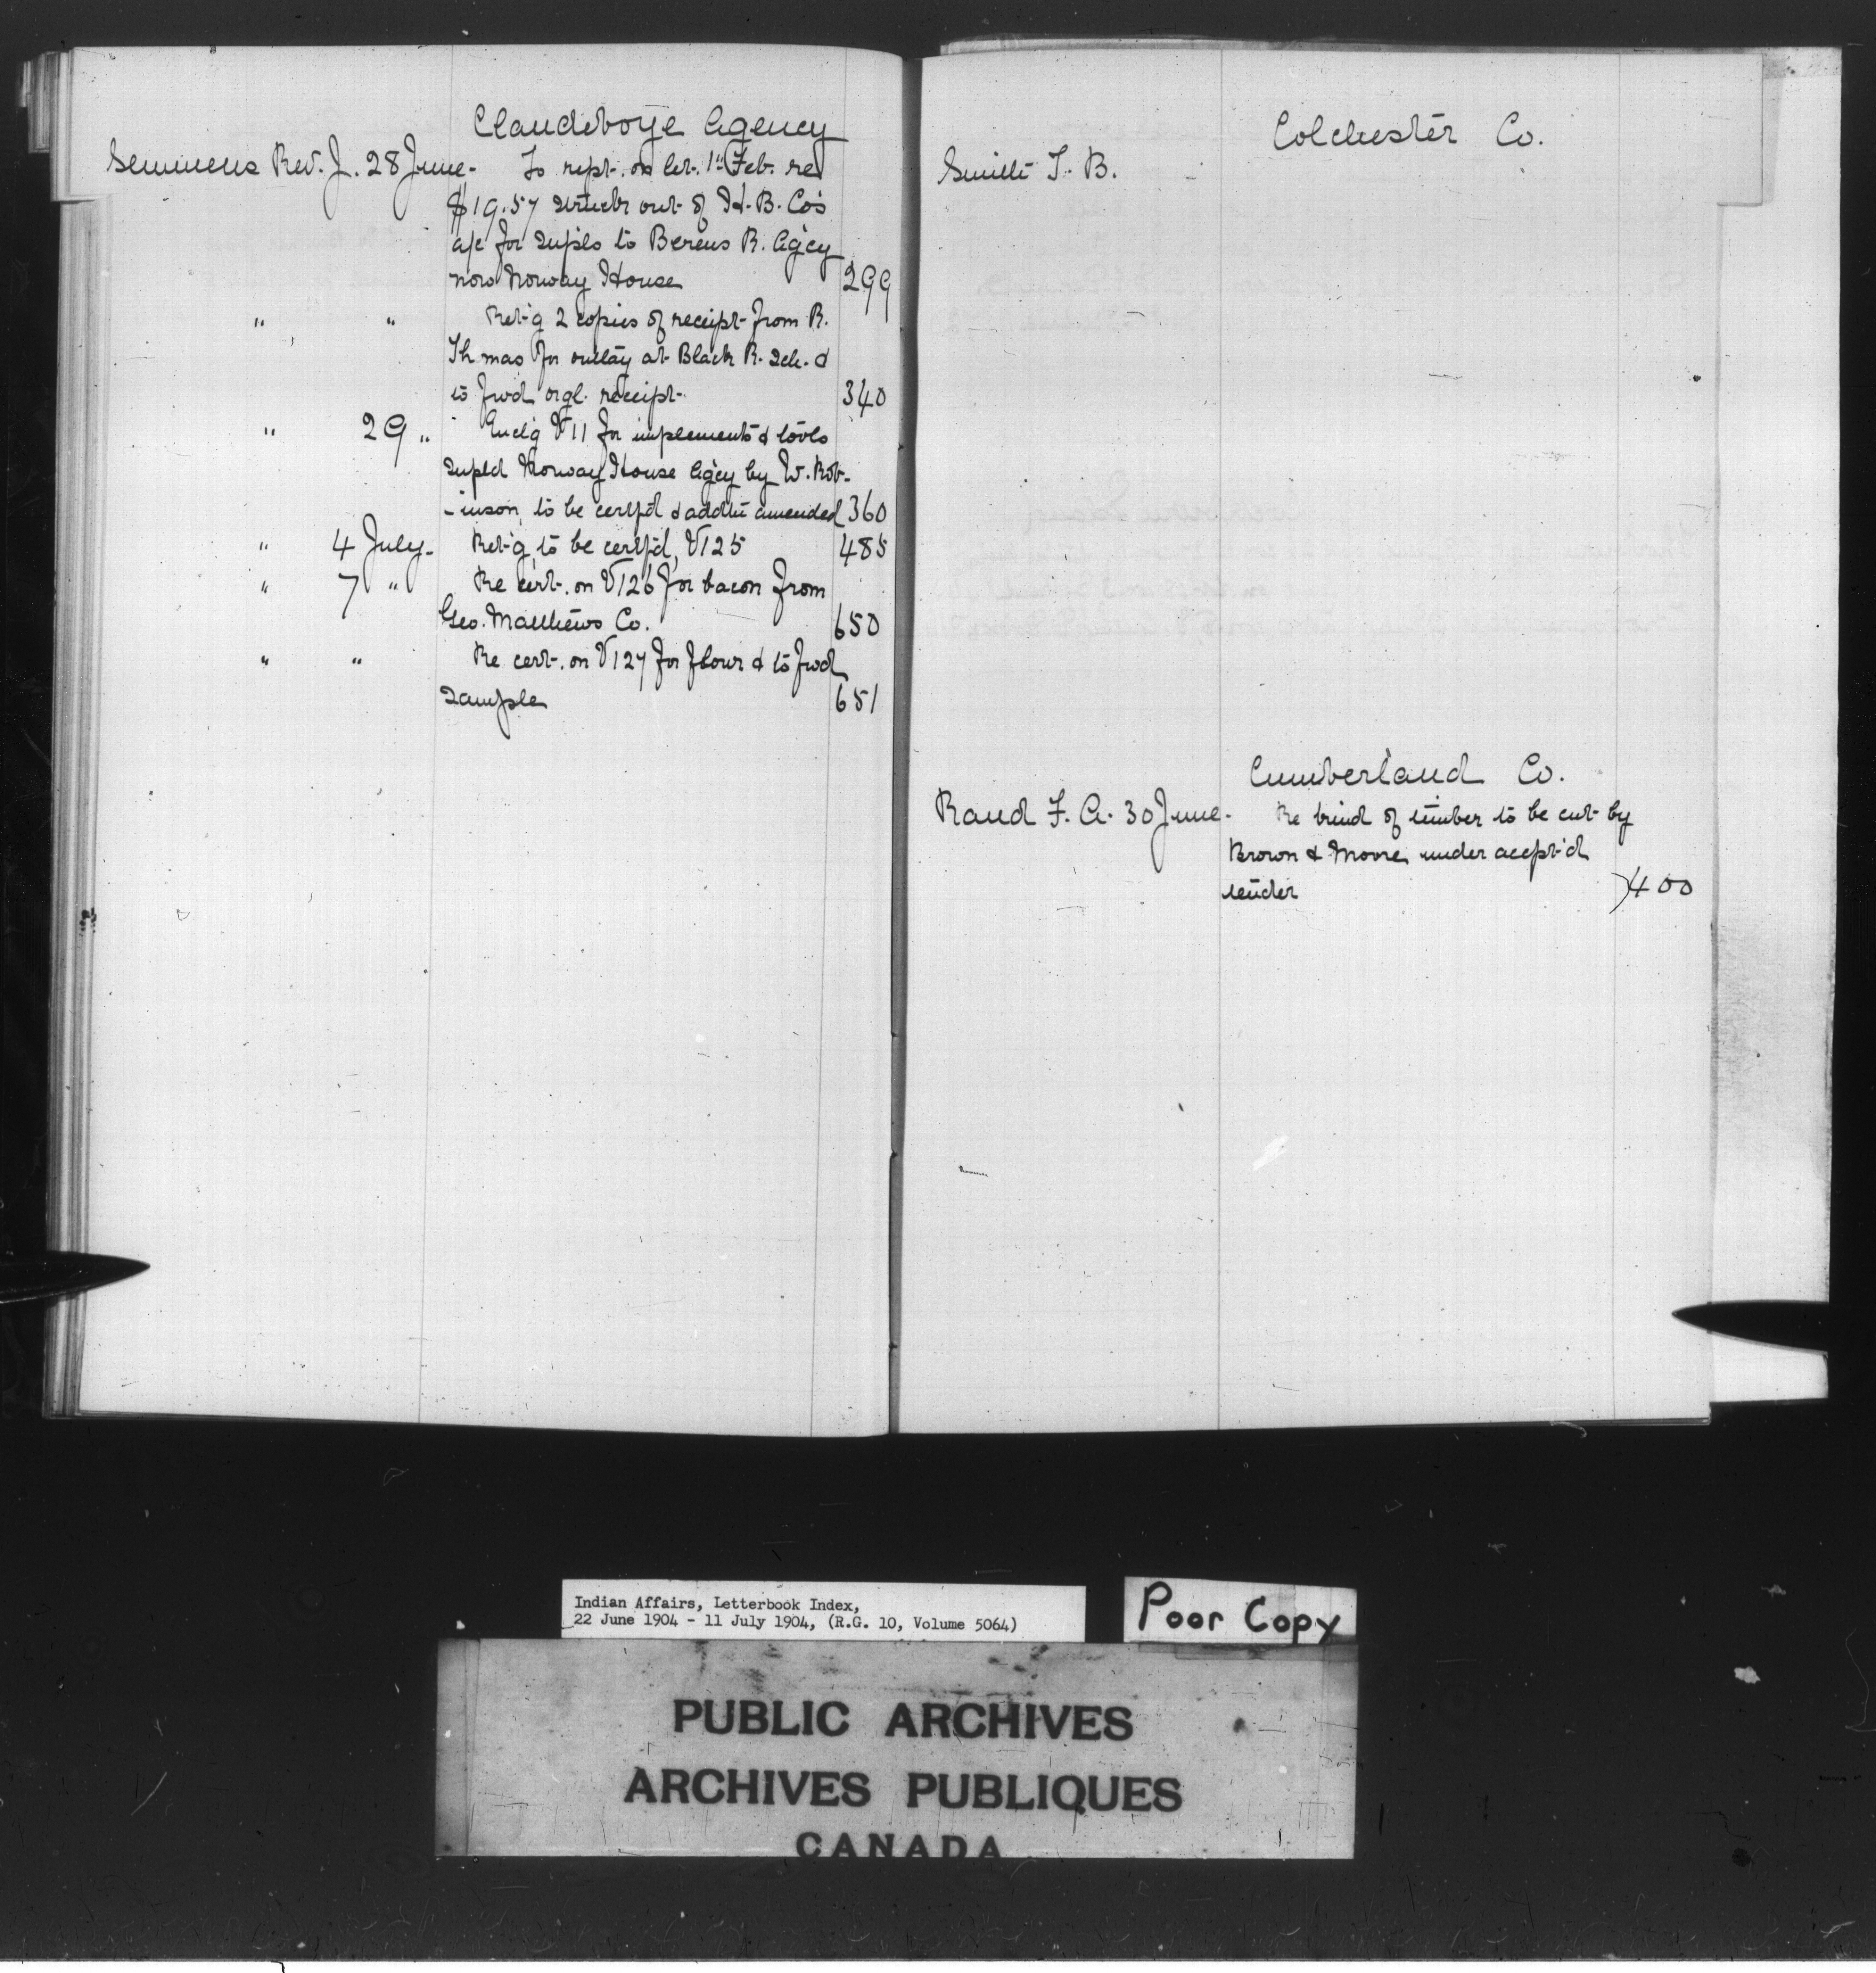 Clandeboye Agency
Semmens Rev. J. 28 June - To rept. on let. 1st Feb. re
$19.57 struck out of H. B. Co's
a/c for supls to Berens R. Ag'cy
now Norway House 299
" " Ret-g 2 copies of receipt from R.
Th mas for outlay at Black R. Sch. &
to fwd orgl. receipt. 340
" 29 " Encl'g V 11 for implements & tools
supld Norway House Ag'cy by W. Rob-
-inson, to be certf'd & addtn amended 360
" 4 July - Ret-g to be certf'd, V125 485
" 7 " Re cert. on V126 for bacon from
Geo. Matthews Co. 650
" " Re cert. on V127 for flour & to fwd
sample 651
Colchester Co.
Smith T. B.
Cumberland Co.
Rand F. A. 30 June - Re kind of timber to be cut by
Brown & Moore under accpt'd
tender 400
Indian Affairs, Letterbook Index,
22 June 1904 - 11 July 1904, (R.G. 10, Volume 5064)
Poor Copy
PUBLIC ARCHIVES
ARCHIVES PUBLIQUES
CANADA